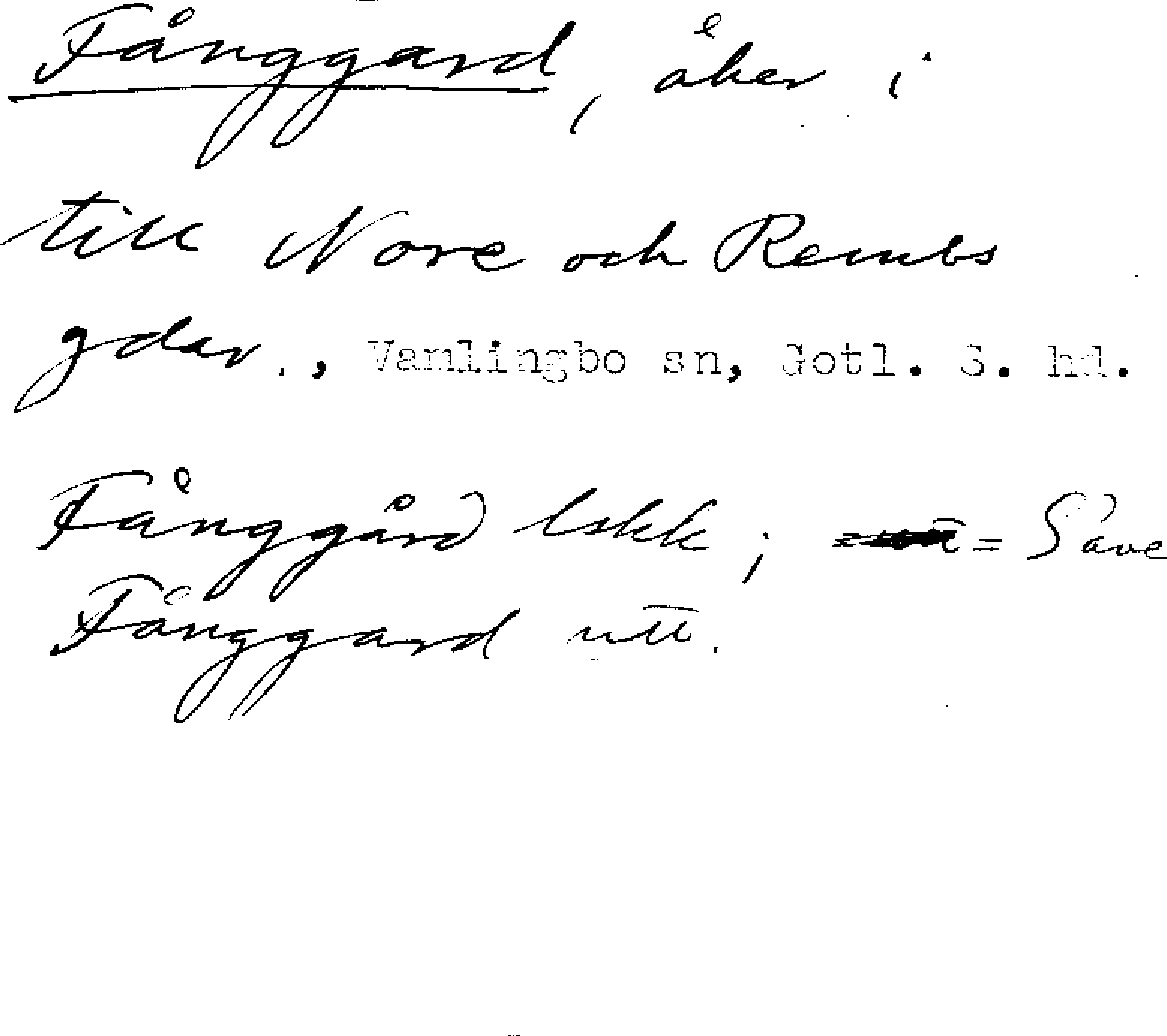 Fånggard, åker i
till Nore och Rembs
gdar., Vamlingbo sn, Gotl. S. hd.
Fånggård lskk; = Säve
Fånggard utt.